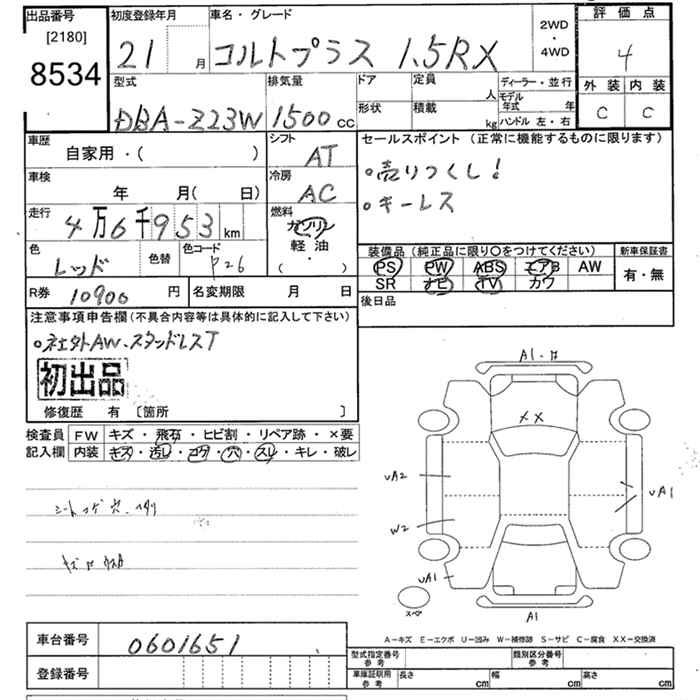 出品番号 初度登録年月 車名・グレード 2WD・4WD 評価点
[2180]
8534 21 月 コルトプラス 1.5RX 4
型式 排気量 ドア 定員 人 ディーラー・並行 外装 内装
DBA-Z23W 1500cc 形状 積載 kg モデル年式 年 ハンドル 左・右 C C
車歴 自家用・( ) シフト AT セールスポイント(正常に機能するものに限ります)
。売りつくし!
車検 年 月( 日) 冷房 AC
。キーレス
走行 4万6千953km 燃料 ガソリン 軽油 ・ ( )
色 レッド 色替 色コード P26
装備品(純正品に限り○をつけてください) 新車保証書
PS PW ABS エアB AW 有・無
SR ナビ TV カワ
R券 10900円 名変期限 月 日 後日品
注意事項申告欄(不具合内容等は具体的に記入して下さい)
。社外AW.スタンドレスT
初出品
修復歴 有 〔箇所 〕
検査員記入欄 FW キズ・飛石・ヒビ割・リペア跡・×要
内装 キズ・汚レ・コゲ・穴・スレ・キレ・破レ
シートコゲ穴.ヘタリ
A1.
XX
UA2
W2
UA1
UA1
スペア
A1
A-キズ E-エクボ U-凹み W-補修跡 S-サビ C-腐食 XX-交換済
車台番号 0601651
型式指定番号 参考 類別区分番号 参考
登録番号
車庫証明用 参考 長さ cm 幅 cm 高さ cm